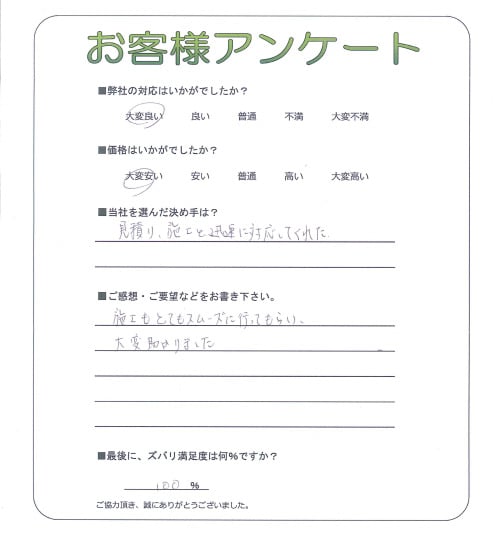 お客様アンケート
■弊社の対応はいかがでしたか?
大変良い 良い 普通 不満 大変不満
■価格はいかがでしたか?
大変安い 安い 普通 高い 大変高い
■当社を選んだ決め手は?
見積り、施工と迅速に対応してくれた。
■ご感想・ご要望などをお書き下さい。
施工もとてもスムーズに行ってもらい、
大変助かりました
■最後に、ズバリ満足度は何%ですか?
100 %
ご協力頂き、誠にありがとうございました。